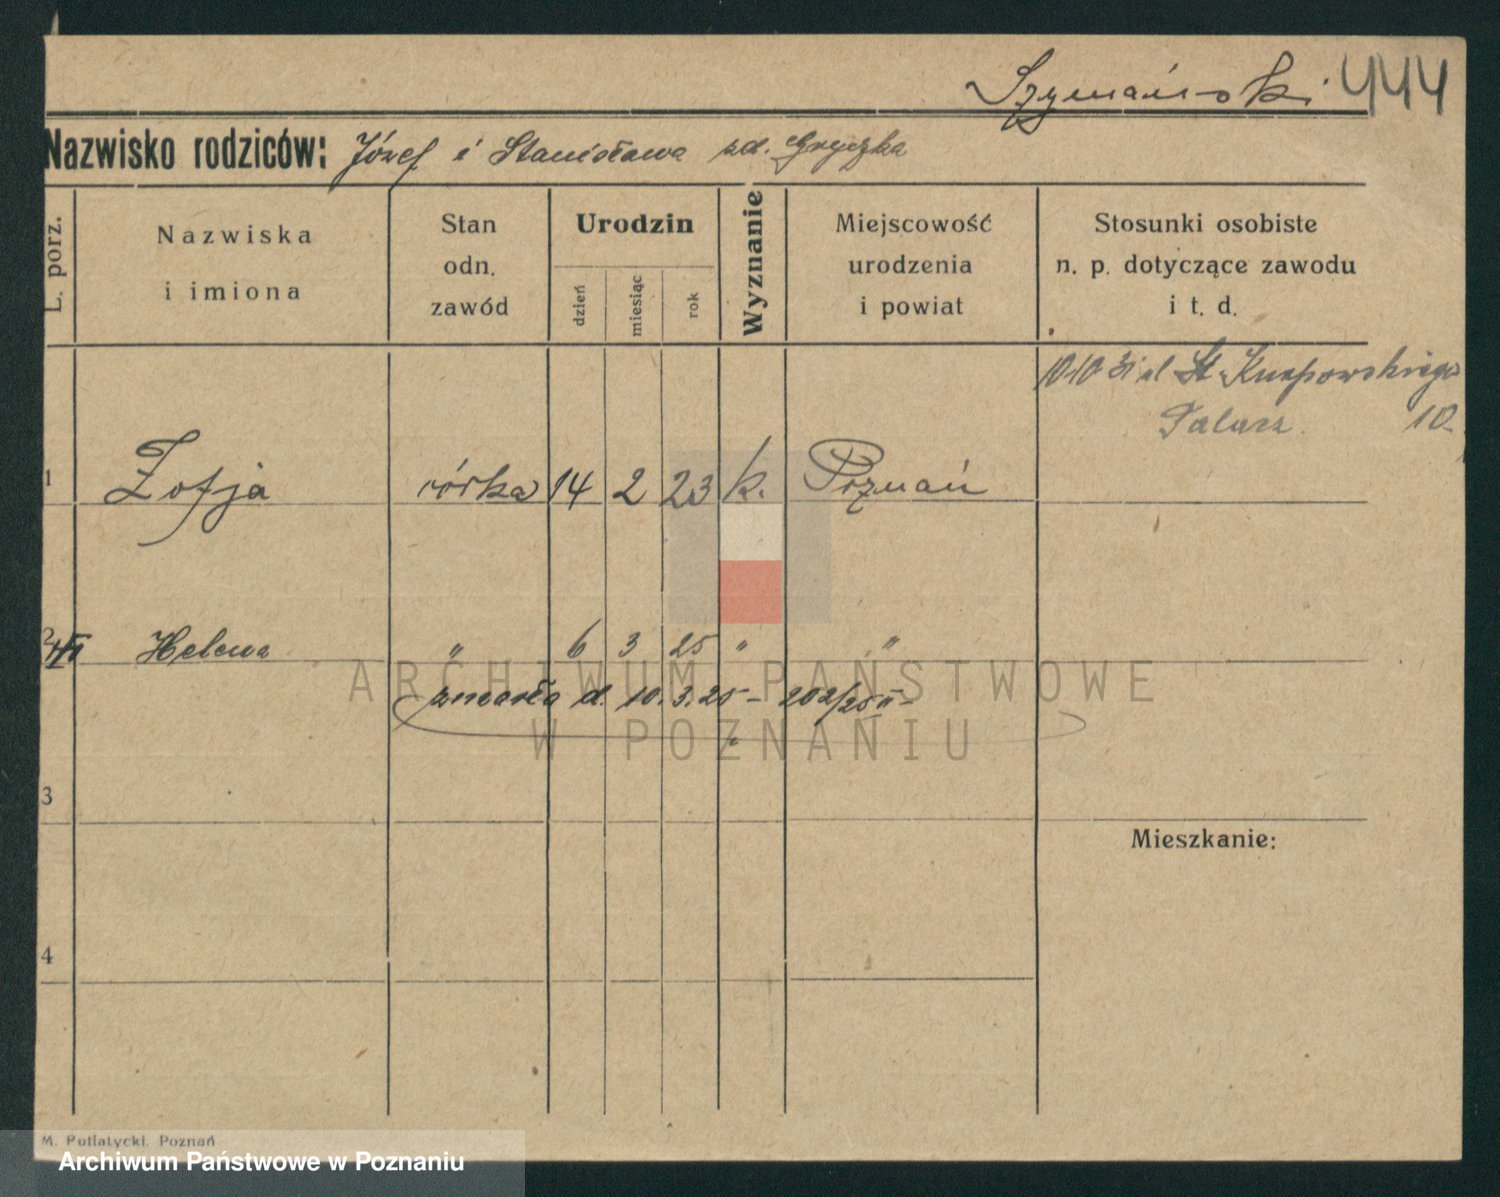 Szymański 444
Nazwisko rodziców: Józef i Stanisława zd. Gryczka
L. porz.
Nazwiska
i imiona
Stan
odn.
zawód
Urodzin
dzień
miesiąc
rok
Wyznanie
Miejscowość
urodzenia
i powiat
Stosunki osobiste
n. p. dotyczące zawodu
i t. d.
10 10 31 ul St. Knapowskiego
10.
1 Zofja córka 14 2 23 k. Poznań
2 Helena " 6 3 25 " "
zmarła d. 10.3.25 - 202/25 II -
3
Mieszkanie:
4
M. Putiatycki. Poznań
ARCHIWUM PAŃSTWOWE
W POZNANIU
Archiwum Państwowe w Poznaniu